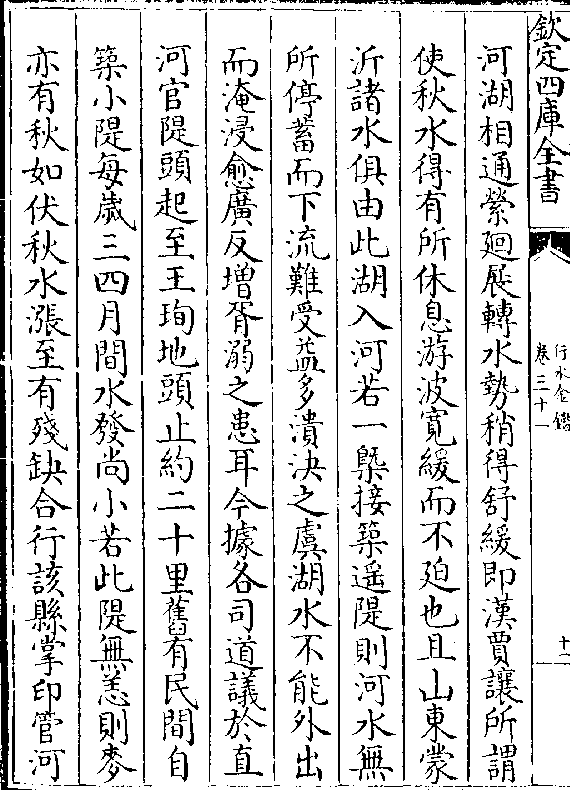 欽定四庫全書
行水金鑑
卷三十一
十一
河湖相通縈廻展轉水勢稍得舒緩即漢賈讓所謂
使秋水得有所休息游波寬緩而不廹也且山東蒙
沂諸水俱由此湖入河若一槩接築遥隄則河水無
所停蓄而下流難受益多潰決之虞湖水不能外出
而淹浸愈廣反増胥溺之患耳今據各司道議於直
河官隄頭起至王珣地頭止約二十里舊有民間自
築小隄每歳三四月間水發尚小若此隄無恙則麥
亦有秋如伏秋水漲至有殘缺合行該縣掌印管河